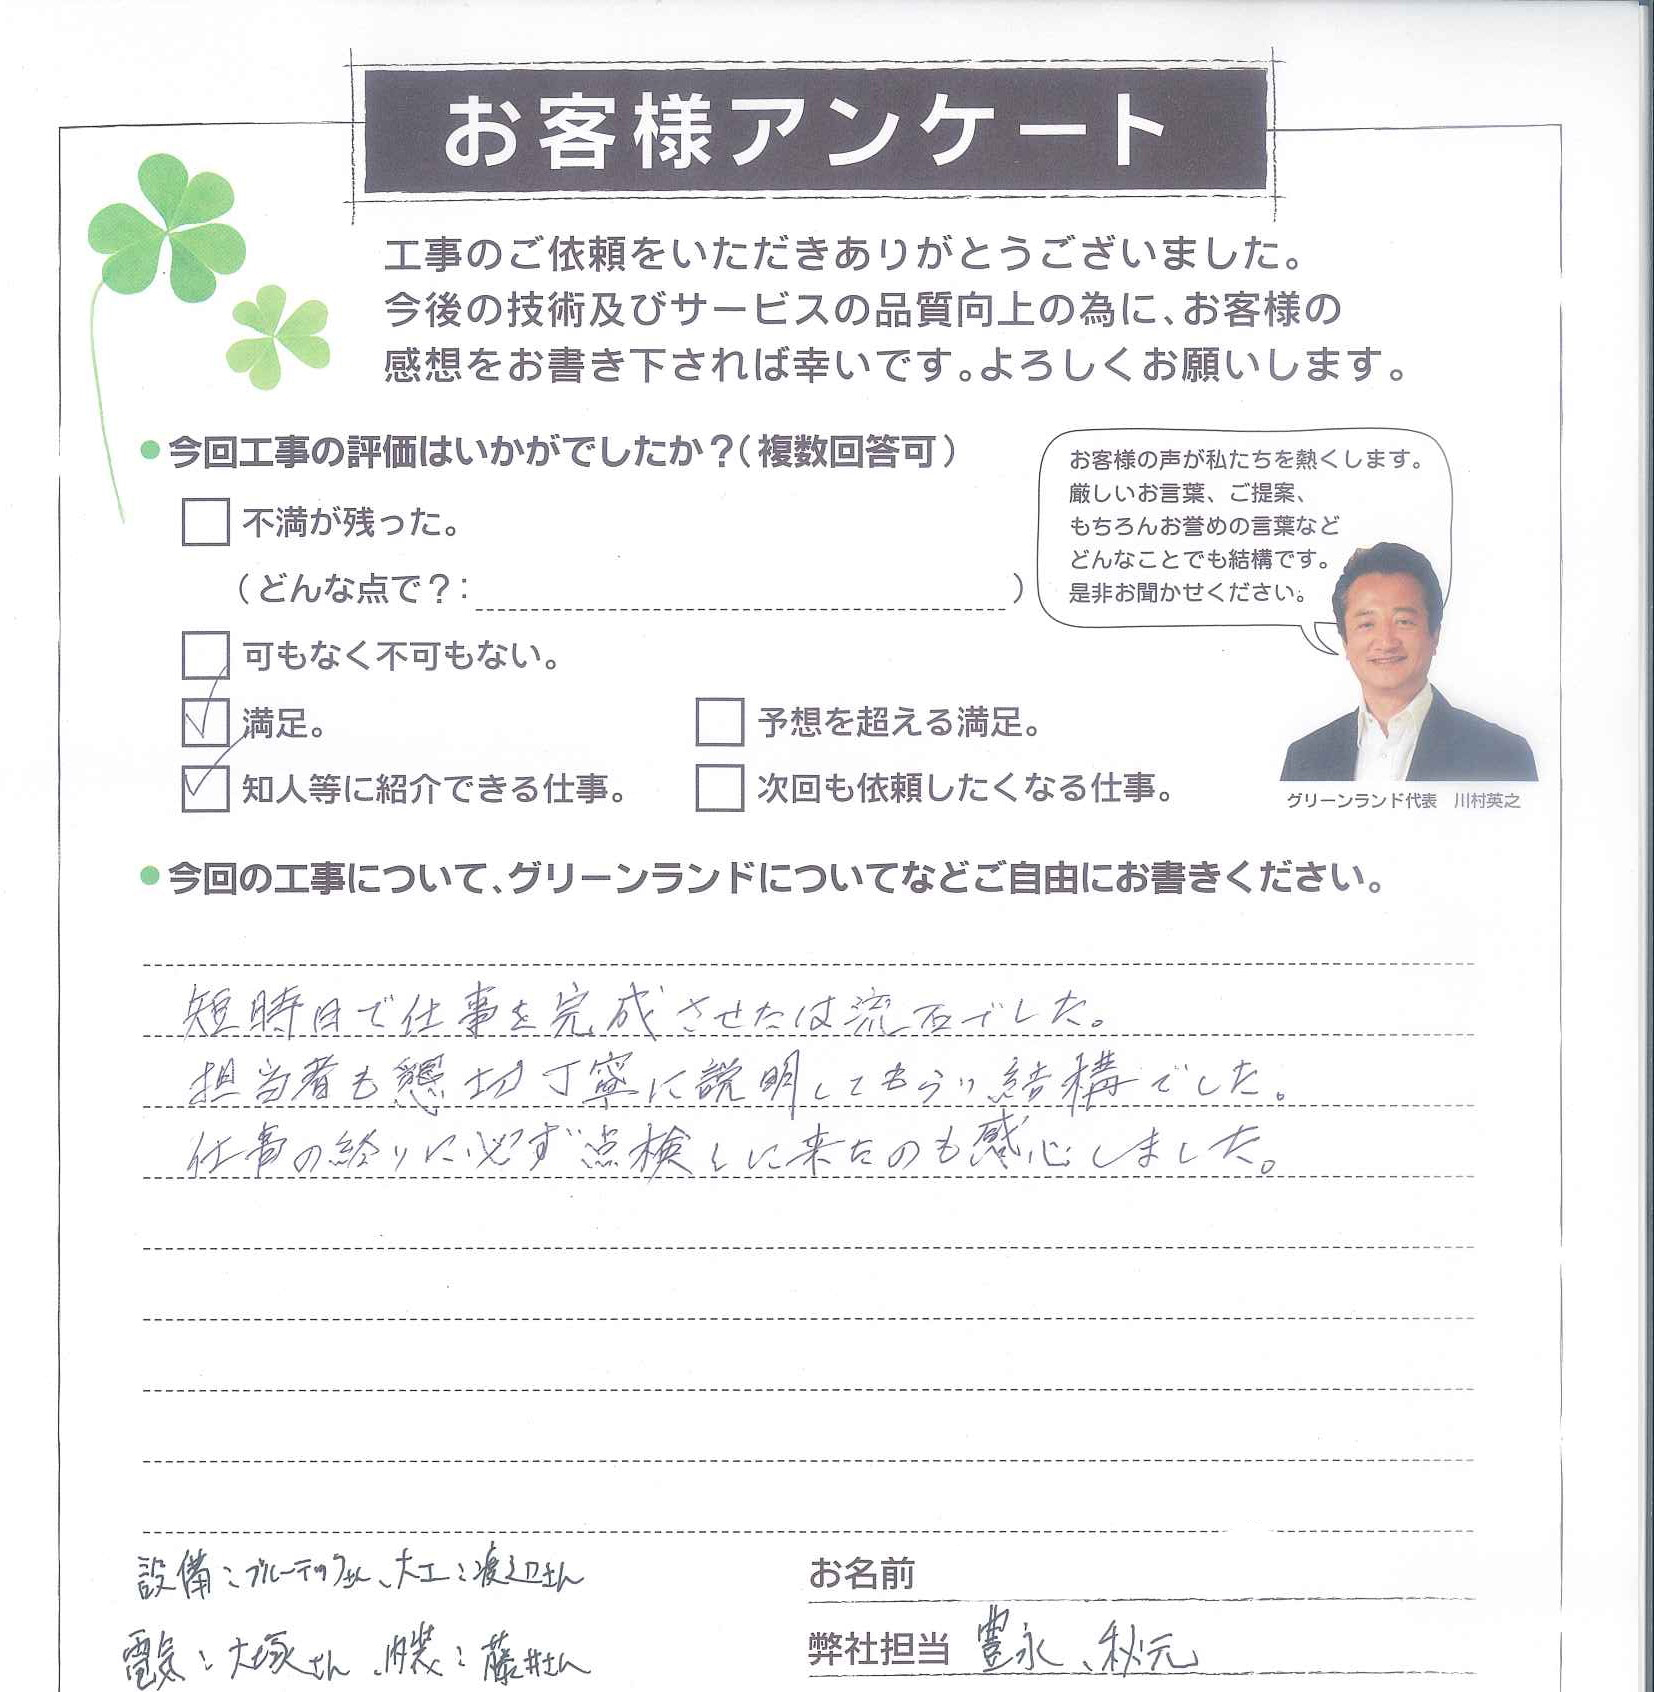 お客様アンケート
工事のご依頼をいただきありがとうございました。
今後の技術及びサービスの品質向上の為に、お客様の
感想をお書き下されば幸いです。よろしくお願いします。
今回工事の評価はいかがでしたか？（複数回答可）
不満が残った。
（どんな点で？：　　　）
可もなく不可もない。
満足。
予想を超える満足。
知人等に紹介できる仕事。
次回も依頼したくなる仕事。
お客様の声が私たちを熱くします。
厳しいお言葉、ご提案、
もちろんお誉めの言葉など
どんなことでも結構です。
是非お聞かせください。
グリーンランド代表　川村英之
今回の工事について、グリーンランドについてなどご自由にお書きください。
短時日で仕事を完成させたは流石でした。
担当者も懇切丁寧に説明してもらい結構でした。
仕事の終りに必ず点検しに来たのも感心しました。
設備：ブルーテックさん、大工：渡辺さん
電気：大塚さん、内装：藤井さん
お名前
弊社担当 豊永、秋元